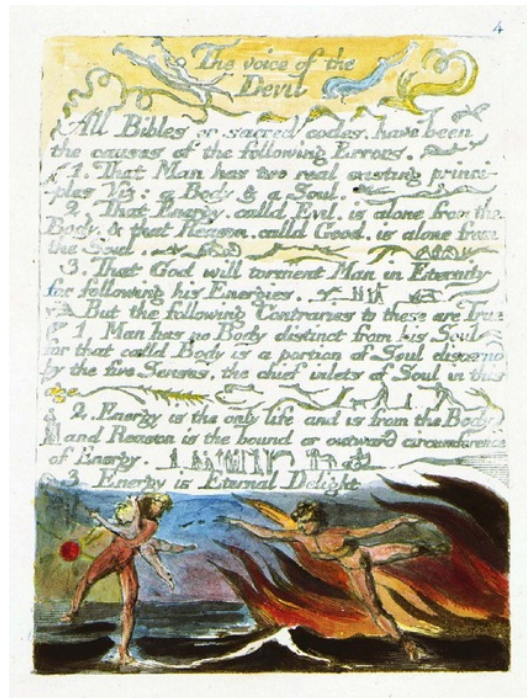 4
The voice of the
Devil
All Bibles or sacred codes. have been
the causes of the following Errors.
1. That Man has two real existing princi-
ples Viz: a Body & a Soul.
2. That Energy. calld Evil. is alone from the
Body. & that Reason. calld Good. is alone from
the Soul.
3. That God will torment Man in Eternity
for following his Energies.
But the following Contraries to these are True
1 Man has no Body distinct from his Soul
for that calld Body is a portion of Soul discernd
by the five Senses. the chief inlets of Soul in this
age
2. Energy is the only life and is from the Body
and Reason is the bound or outward circumference
of Energy.
3 Energy is Eternal Delight